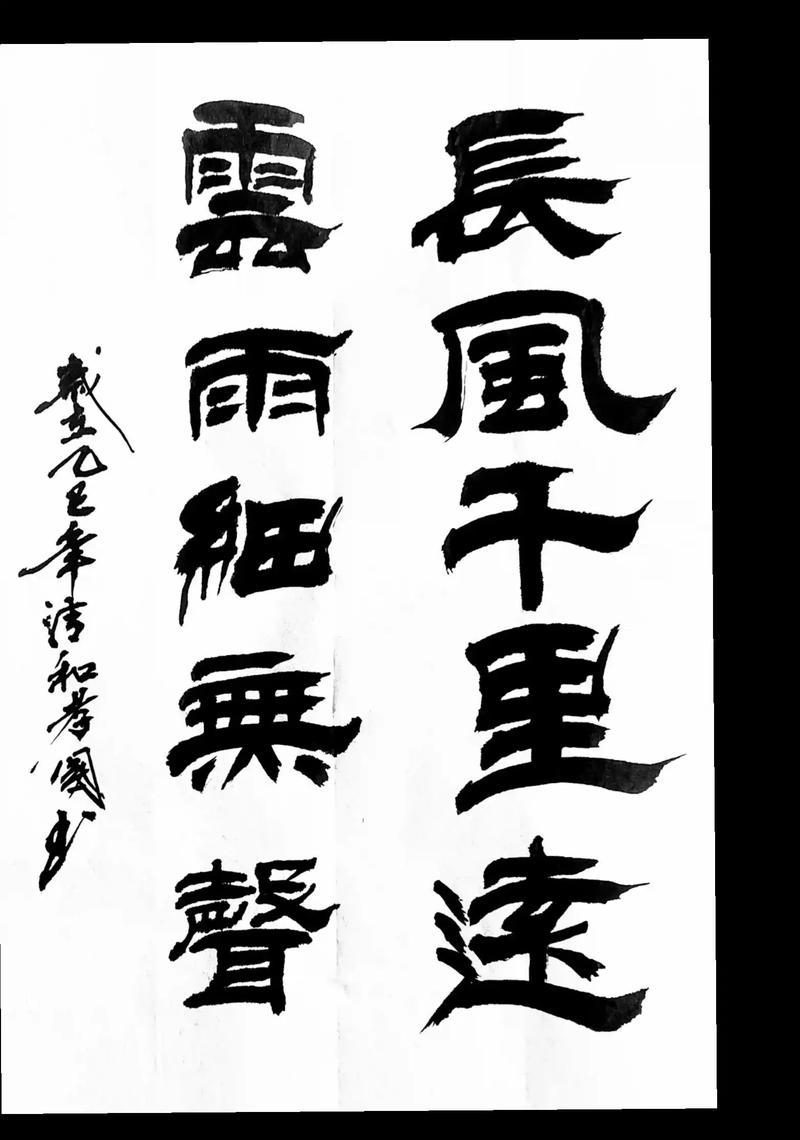 長風千里遠
雲雨細無聲
歲在乙巳年清和孝國书